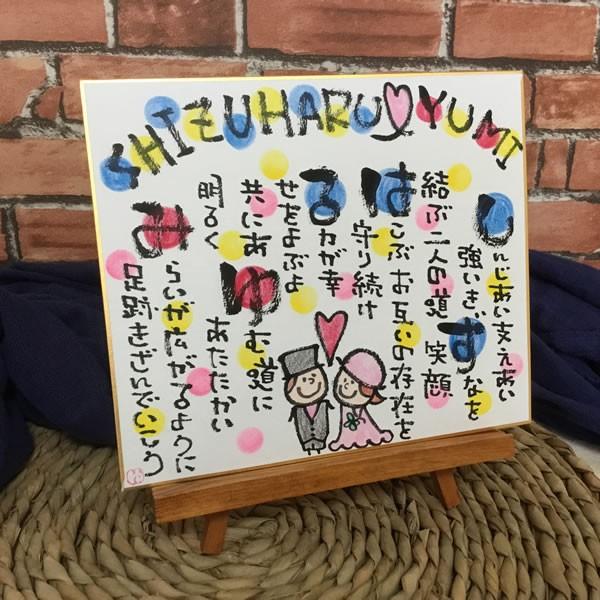 SHIZUHARU♡YUMI
しんじあい支えあい
強いきずなを
結ぶ二人の道 笑顔
はこぶお互いの存在を
守り続け
る力が幸
せをよぶよ
共にあゆむ道に
明るく あたたかい
みらいが広がるように
足跡きざんでいこう